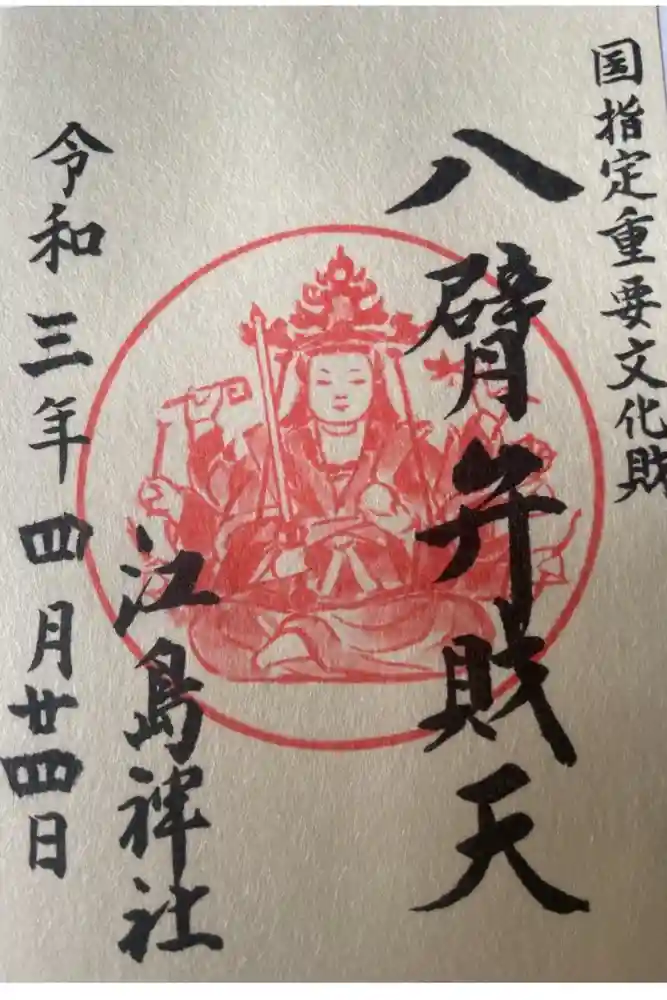 国指定重要文化財
八臂弁財天
江島神社
令和三年四月廿四日